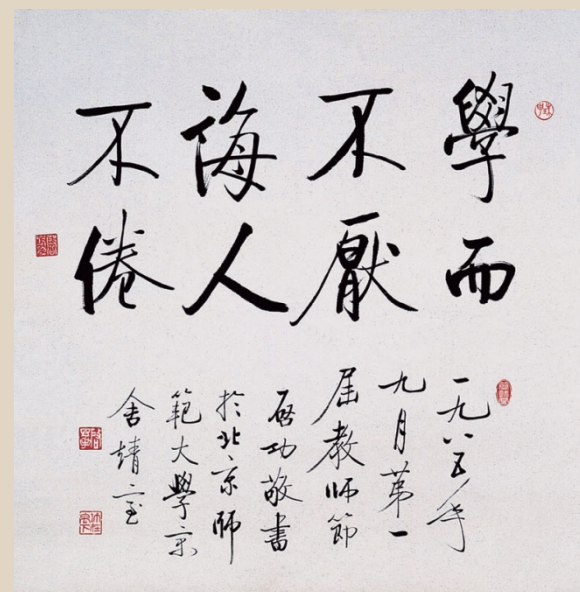 學而
不厭
誨人
不倦
一九八五年
九月第一
屆教師節
啟功敬書
於北京師
範大學
舍